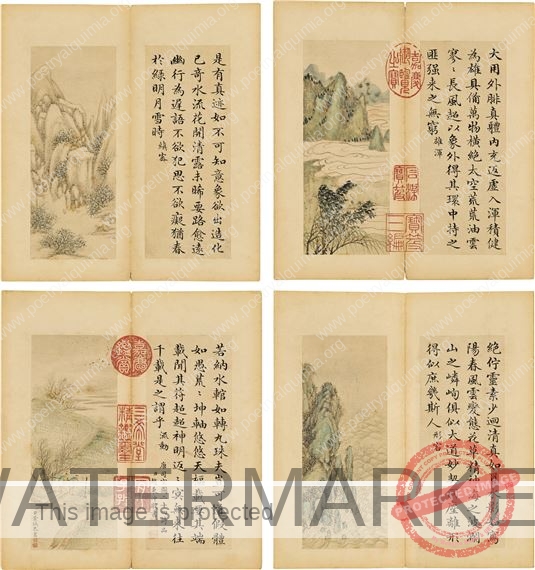 大用外腓真體內充返虛入渾積健
為雄具備萬物橫絕太空荒荒油雲
寥〻長風超以象外得其環中持之
匪强來之無窮 雄渾
嘉慶御覽之寶
石渠寶笈
是有真迹如不可知意象欲出造化
已奇水流花開清露未晞要路愈遠
幽行為遲語不欲犯思不欲癡猶春
於綠明月雪時 縝密
絕佇靈素少迴清真如
陽春風雲變態花草精神之波瀾
山之嶙峋俱似大道妙契塵離形
得似庶幾斯人 形容
若納水輨如轉丸珠夫豈可道假體
如愚荒〻坤軸悠悠天樞其端
載聞其符超超神明返〻冥無來往
千載是之謂乎 流動
嘉慶鑑賞
三希堂精鑑璽
WATERMARKED
This image is protected